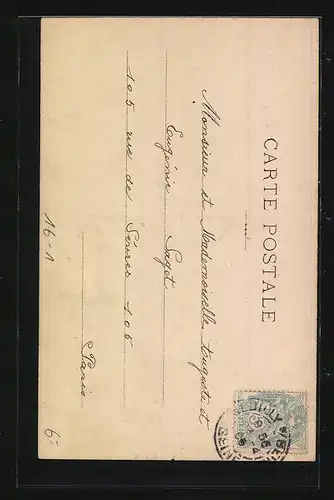 CARTE POSTALE
Monsieur et Mademoiselle Auguste et
Eugénie Saget
105 rue de Sèvres 105
Paris
16-1
6-